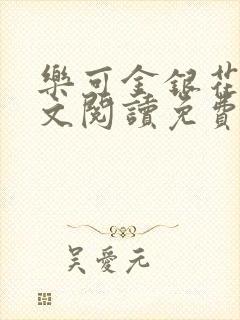 樂可金銀花
文閱讀免費
吳愛元